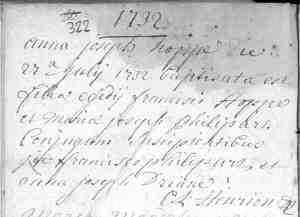 322
1732
anna joseph hoppe die
27a Julij 1732 baptisata est
filia egidij francisci Hoppe
et maria joseph philipart
Conjugum Suscipientibus
francisco philippart et
anna joseph Driane
Henrion